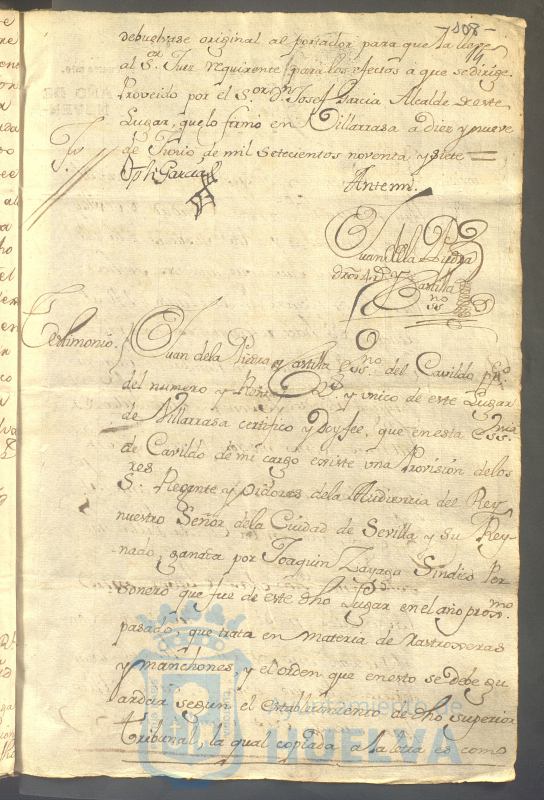 -108-
debuelvase original al portador para que la lleve
al S.or Juez requirente para los efectos a que se dirige.
Proveido por el S.or D.n Josef Garcia Alcalde de este
Lugar, que lo firmó en Villarrasa a diez y nueve
de Junio de mil setecientos noventa, y siete =
Jph Garcia
Ante mi.
Juan de la Piedra
y Castilla
Testimonio.
Juan de la Piedra y Castilla Ess.no del Cavildo
del numero y Rentas R.s y unico de este Lugar
de Villarrasa certifico y Doy fee, que en esta Ess.nia
de Cavildo de mi cargo existe una Provision de los
S.res Regente y Oidores de la Audiencia del Rey
nuestro Señor, de la Ciudad de Sevilla y su Rey-
nado, ganada por Joaquin Zayago Sindico Per-
sonero que fue de este dho Lugar en el año prox.mo
pasado, que trata en materia de Rastrogeras
y manchones, y el orden que en esto se debe gu-
ardar segun el establecimiento de dho superior
tribunal, la qual copiada a la letra es como
Ayuntamiento de
HUELVA